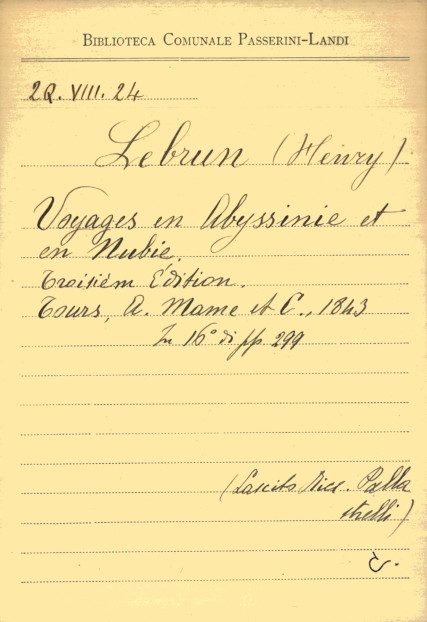 BIBLIOTECA COMUNALE PASSERINI-LANDI
2Q. VIII. 24
Lebrun (Henry)
Voyages en Abyssinie et
en Nubie.
Troisièm Édition.
Tours, A. Mame et C., 1843
In 16° di pp 299
(Lascito Nicc. Palla
strelli)